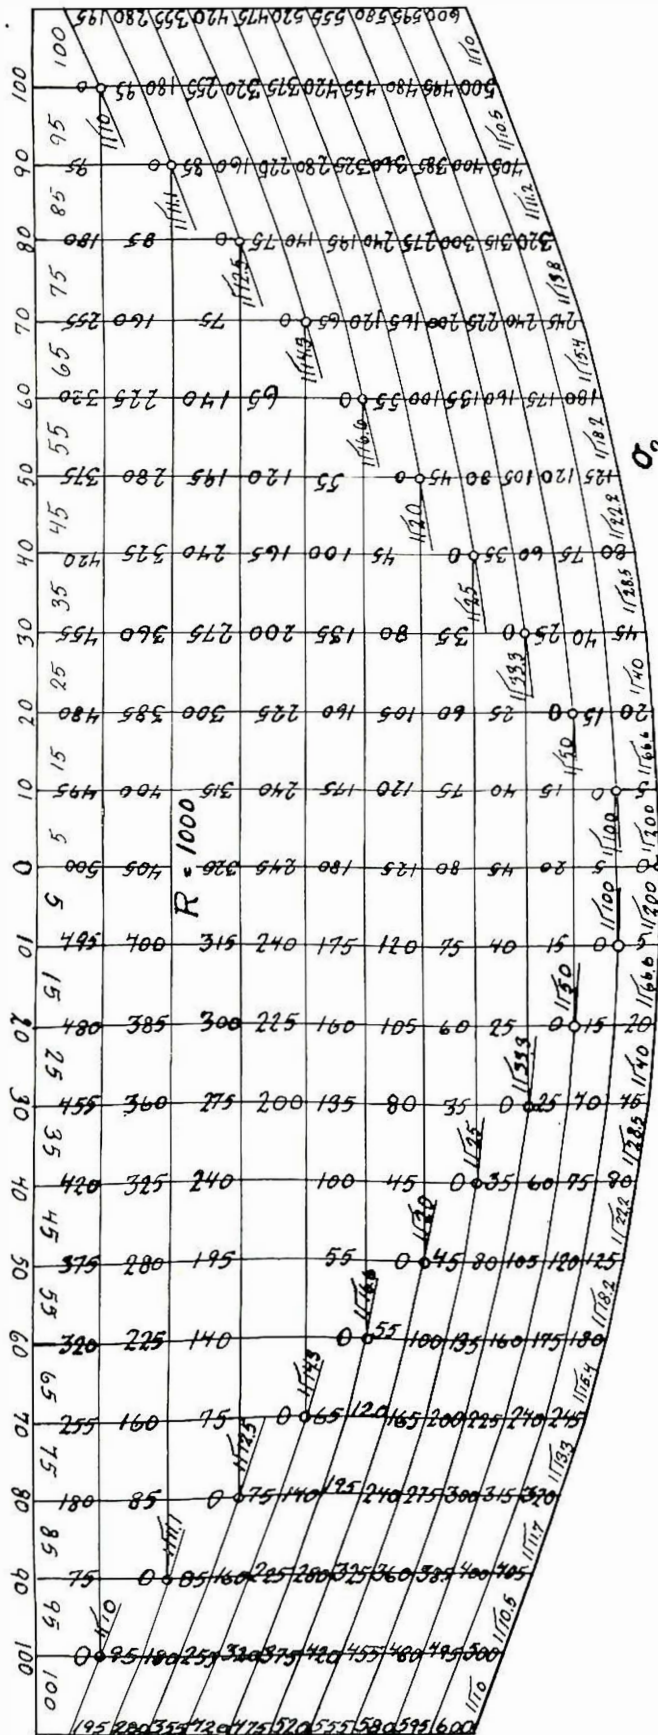 195 280 355 420 475 520 555 580 595 600
100 1/10
100 0 95 180 255 320 375 420 455 480 495 500
95 1/10 1/10.5
90 95 0 85 160 225 280 325 360 385 400 405
85 1/11.1 1/11.2
80 180 85 0 75 140 195 240 275 300 315 320
75 1/12.5 1/13.8
70 255 160 75 0 65 120 165 200 225 240 245
65 1/14.3 1/15.4
60 320 225 140 65 0 55 100 135 160 175 180
55 1/16.6 1/18.2
50 375 280 195 120 55 0 45 80 105 120 125
45 1/20 1/22.2
40 420 325 240 165 100 45 0 35 60 75 80
35 1/25 1/28.5
30 455 360 275 200 135 80 35 0 25 40 45
25 1/33.3 1/40
20 480 385 300 225 160 105 60 25 0 15 20
15 1/50 1/66.6
10 495 400 315 240 175 120 75 40 15 0 5
5 1/100 1/200
0 500 405 320 245 180 125 80 45 20 5 0
R = 1000
5 1/100 1/200
10 495 400 315 240 175 120 75 40 15 0 5
15 1/50 1/66.6
20 480 385 300 225 160 105 60 25 0 15 20
25 1/33.3 1/40
30 455 360 275 200 135 80 35 0 25 40 45
35 1/25 1/28.5
40 420 325 240 100 45 0 35 60 75 80
45 1/20 1/22.2
50 375 280 195 55 0 45 80 105 120 125
55 1/16.6 1/18.2
60 320 225 140 0 55 100 135 160 175 180
65 1/14.3 1/15.4
70 255 160 75 0 65 120 165 200 225 240 245
75 1/12.5 1/13.3
80 180 85 0 75 140 195 240 275 300 315 320
85 1/11.1 1/11.7
90 75 0 85 160 225 280 325 360 385 400 405
95 1/10 1/10.5
100 0 95 180 255 320 375 420 455 480 495 500
100 1/10
195 280 355 420 475 520 555 580 595 600